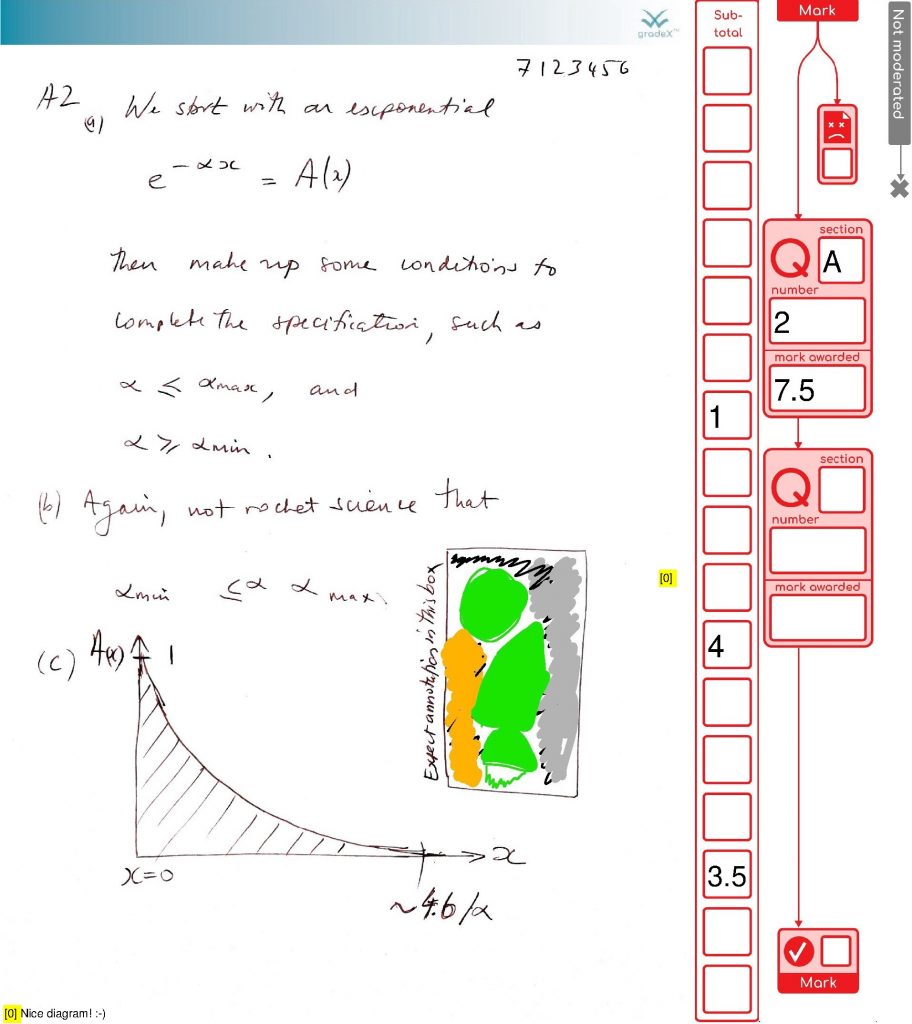 gradeX™
7123456
A2
(a) We start with an exponential
e^{-αx} = A(x)
then make up some conditions to
complete the specification, such as
α ≤ αmax, and
α ≥ αmin.
(b) Again, not rocket science that
αmin ≤ α αmax
(c) A(x) 1
Expect annotation in this box
x
x=0
~4.6/α
[0]
[0] Nice diagram! :-)
Sub-
total
1
4
3.5
Mark
section
Q A
number
2
mark awarded
7.5
section
Q
number
mark awarded
Mark
Not moderated